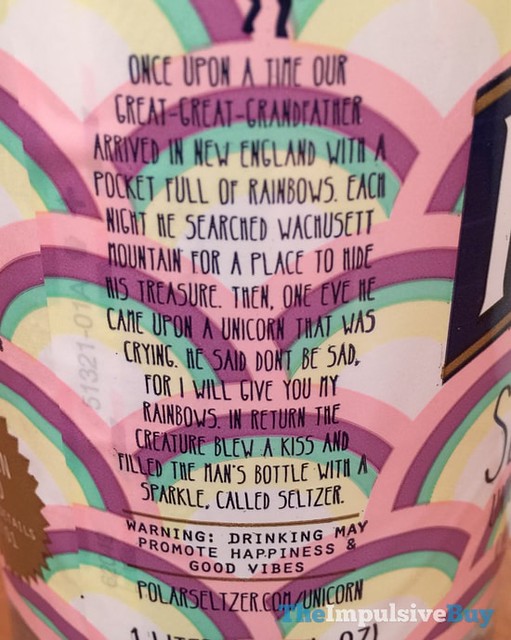 ONCE UPON A TIME OUR
GREAT-GREAT-GRANDFATHER
ARRIVED IN NEW ENGLAND WITH A
POCKET FULL OF RAINBOWS. EACH
NIGHT HE SEARCHED WACHUSETT
MOUNTAIN FOR A PLACE TO HIDE
HIS TREASURE. THEN, ONE EVE HE
CAME UPON A UNICORN THAT WAS
CRYING. HE SAID DON'T BE SAD,
FOR I WILL GIVE YOU MY
RAINBOWS. IN RETURN THE
CREATURE BLEW A KISS AND
FILLED THE MAN'S BOTTLE WITH A
SPARKLE, CALLED SELTZER.
WARNING: DRINKING MAY
PROMOTE HAPPINESS &
GOOD VIBES
POLARSELTZER.COM/UNICORN
1 LITER
51321-01A
TheImpulsiveBuy